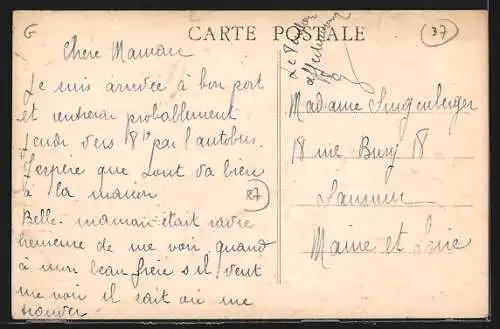 G
CARTE POSTALE
37
affectueux
Chere Maman
Je suis arrivée à bon port
et rentrerai probablement
jeudi vers 8 h par l'autobus.
J'espère que tout va bien
à la maison
Belle-maman était ravie
heureuse de me voir. quand
à mon beau frère s'il veut
me voir il sait où me
trouver
87
Madame Singenberger
18 rue Bury 18
Saumur
Maine et Loire